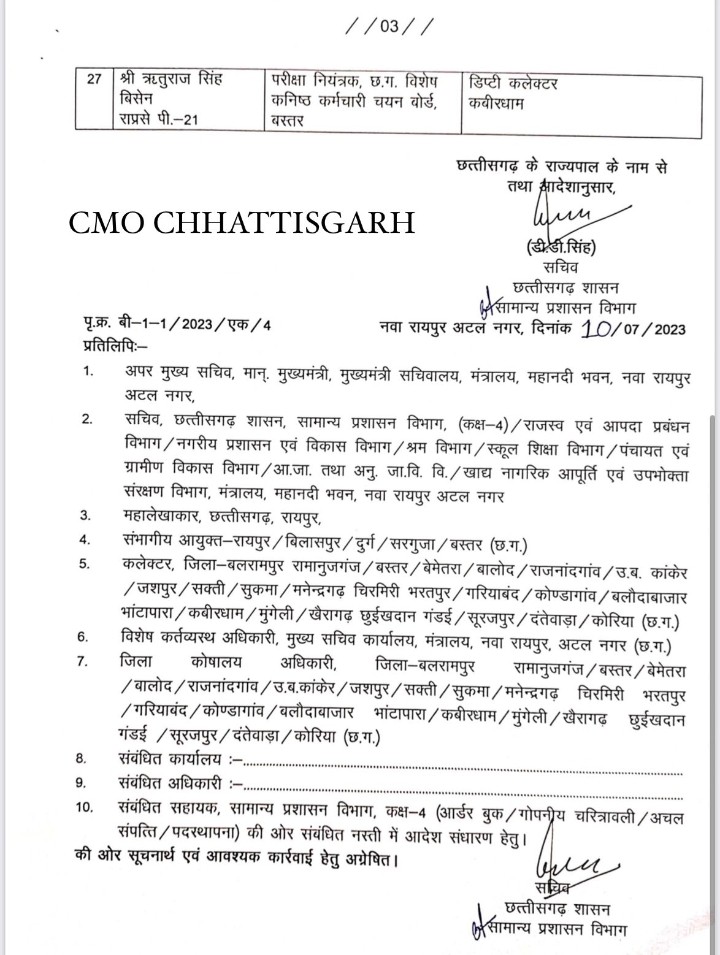 //03//
27 श्री ऋतुराज सिंह परीक्षा नियंत्रक, छ.ग. विशेष डिप्टी कलेक्टर
बिसेन कनिष्ठ कर्मचारी चयन बोर्ड, कबीरधाम
राप्रसे पी.–21 बस्तर
छत्तीसगढ़ के राज्यपाल के नाम से
तथा आदेशानुसार,
CMO CHHATTISGARH
(डी.डी.सिंह)
सचिव
छत्तीसगढ़ शासन
सामान्य प्रशासन विभाग
पृ.क्र. बी–1–1/2023/एक/4 नवा रायपुर अटल नगर, दिनांक 10/07/2023
प्रतिलिपिः–
1. अपर मुख्य सचिव, मान्. मुख्यमंत्री, मुख्यमंत्री सचिवालय, मंत्रालय, महानदी भवन, नवा रायपुर
अटल नगर,
2. सचिव, छत्तीसगढ़ शासन, सामान्य प्रशासन विभाग, (कक्ष–4)/राजस्व एवं आपदा प्रबंधन
विभाग/नगरीय प्रशासन एवं विकास विभाग/श्रम विभाग/स्कूल शिक्षा विभाग/पंचायत एवं
ग्रामीण विकास विभाग/आ.जा. तथा अनु. जा.वि. वि./खाद्य नागरिक आपूर्ति एवं उपभोक्ता
संरक्षण विभाग, मंत्रालय, महानदी भवन, नवा रायपुर अटल नगर
3. महालेखाकार, छत्तीसगढ़, रायपुर,
4. संभागीय आयुक्त–रायपुर/बिलासपुर/दुर्ग/सरगुजा/बस्तर (छ.ग.)
5. कलेक्टर, जिला–बलरामपुर रामानुजगंज/बस्तर/बेमेतरा/बालोद/राजनांदगांव/उ.ब. कांकेर
/जशपुर/सक्ती/सुकमा/मनेन्द्रगढ़ चिरमिरी भरतपुर/गरियाबंद/कोण्डागांव/बलौदाबाजार
भांटापारा/कबीरधाम/मुंगेली/खैरागढ़ छुईखदान गंडई/सूरजपुर/दंतेवाड़ा/कोरिया (छ.ग.)
6. विशेष कर्तव्यस्थ अधिकारी, मुख्य सचिव कार्यालय, मंत्रालय, नवा रायपुर, अटल नगर (छ.ग.)
7. जिला कोषालय अधिकारी, जिला–बलरामपुर रामानुजगंज/बस्तर/बेमेतरा
/बालोद/राजनांदगांव/उ.ब.कांकेर/जशपुर/सक्ती/सुकमा/मनेन्द्रगढ़ चिरमिरी भरतपुर
/गरियाबंद/कोण्डागांव/बलौदाबाजार भांटापारा/कबीरधाम/मुंगेली/खैरागढ़ छुईखदान
गंडई /सूरजपुर/दंतेवाड़ा/कोरिया (छ.ग.)
8. संबंधित कार्यालय :–....................
9. संबंधित अधिकारी :–....................
10. संबंधित सहायक, सामान्य प्रशासन विभाग, कक्ष–4 (आर्डर बुक/गोपनीय चरित्रावली/अचल
संपत्ति/पदस्थापना) की ओर संबंधित नस्ती में आदेश संधारण हेतु।
की ओर सूचनार्थ एवं आवश्यक कार्रवाई हेतु अग्रेषित।
सचिव
छत्तीसगढ़ शासन
सामान्य प्रशासन विभाग